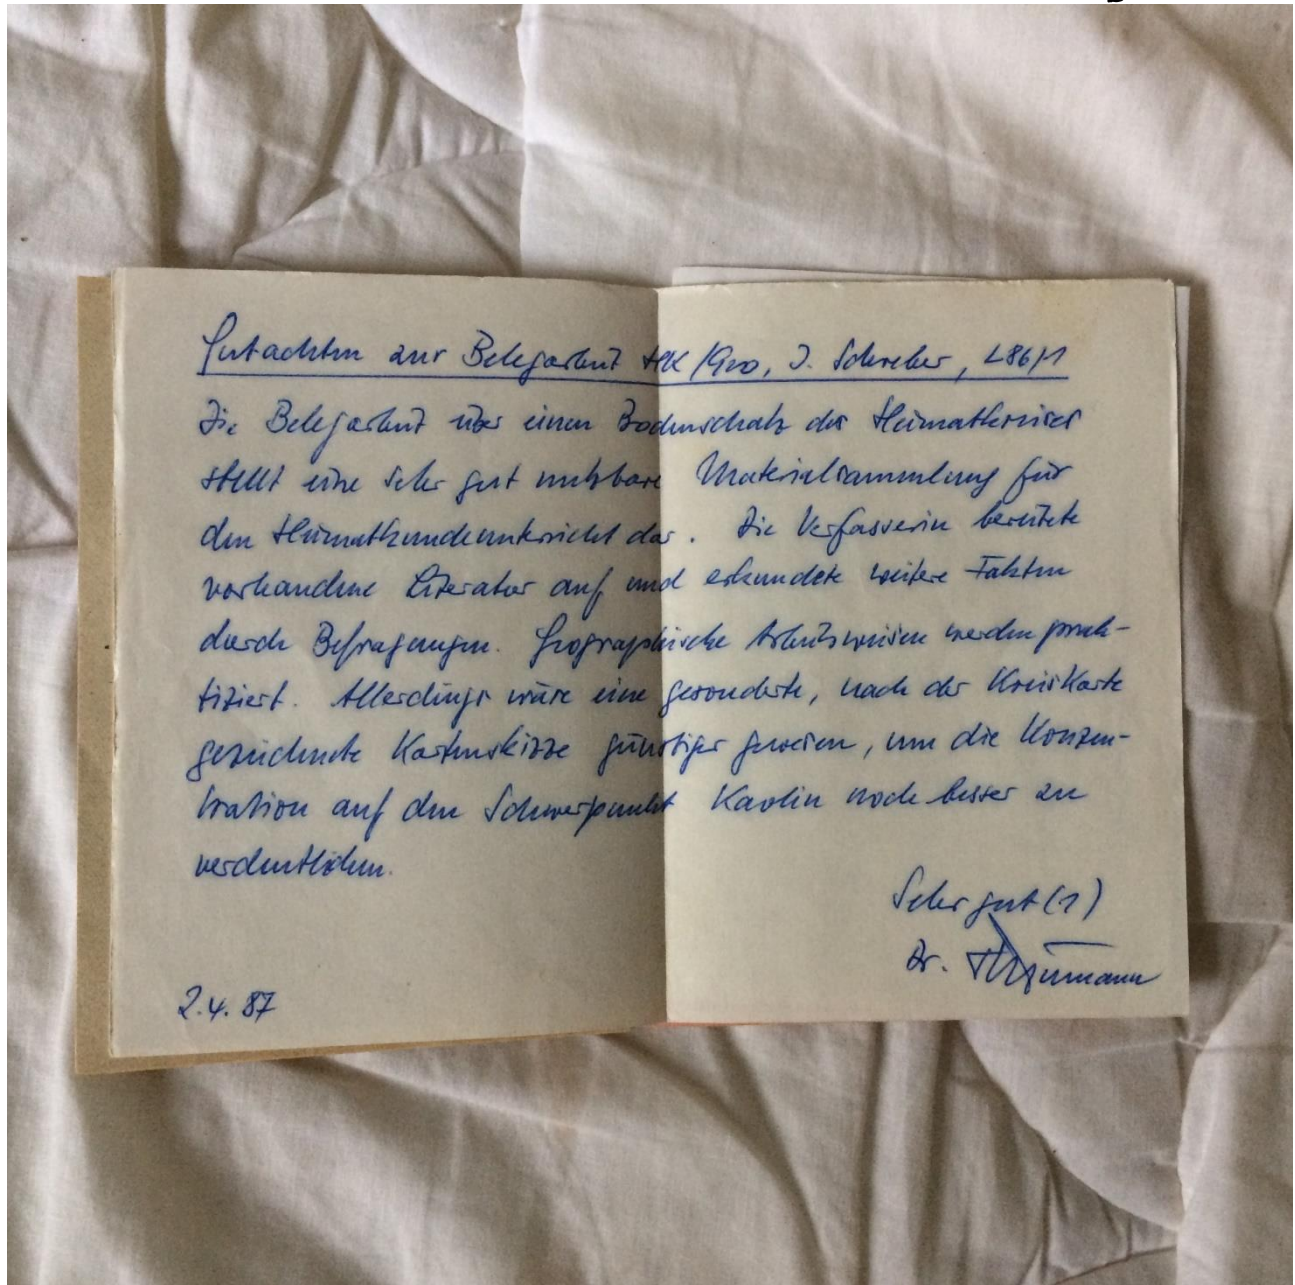 Gutachten zur Belegarbeit HK/Geo, I. Schreiber, L86/1
Die Belegarbeit über einen Bodenschatz des Heimatkreises
stellt eine sehr gut nutzbare Materialsammlung für
den Heimatkundeunterricht dar. Die Verfasserin bereitete
vorhandene Literatur auf und erkundete weitere Fakten
durch Befragungen. Geographische Arbeitsweisen werden prak-
tiziert. Allerdings wäre eine gesonderte, nach der Kreiskarte
gezeichnete Kartenskizze günstiger gewesen, um die Konzen-
tration auf den Schwerpunkt Kaolin noch besser zu
verdeutlichen.
Sehr gut (1)
Dr.
2.4.87